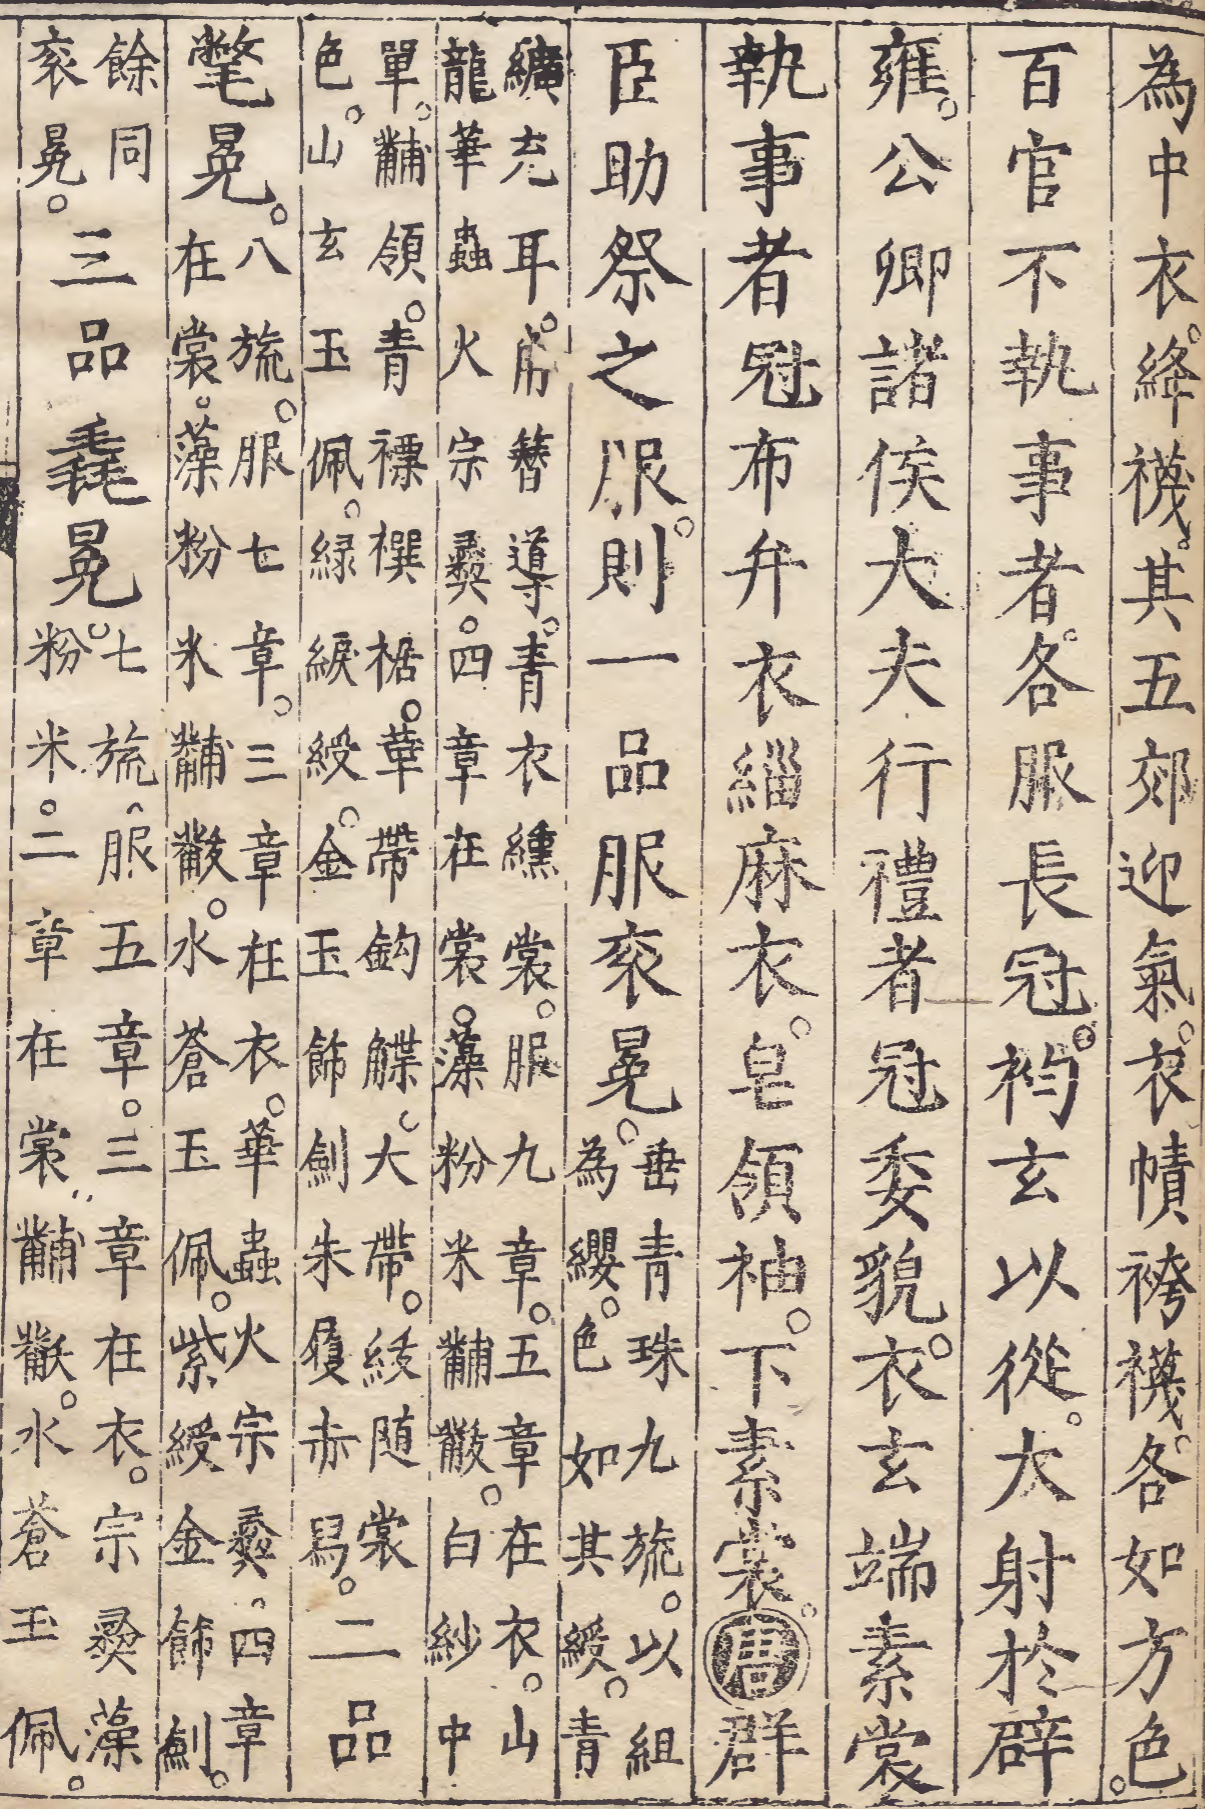 為中衣。絳襪。其五郊迎氣。衣幘袴襪。各如方色。
百官不執事者。各服長冠。袀玄以從。大射於辟
雍。公卿諸侯大夫行禮者冠委貌。衣玄端素裳
執事者冠布弁衣緇麻衣。皂領袖。下素裳。唐群
臣助祭之服。則一品服衮冕。垂青珠九旒。以組
為纓。色如其綬。青
纊充耳。角簪導。青衣纁裳。服九章。五章在衣。山
龍華蟲火宗彝。四章在裳。藻粉米黼黻。白紗中
單。黼領。青褾襈裾。革帶鈎䚢。大帶。綬隨裳
色。山玄玉佩。綠綟綬。金玉飾劍朱襪赤舄。二品
鷩冕。八旒。服七章。三章在衣。華蟲火宗彝。四章
在裳。藻粉米黼黻。水蒼玉佩。紫綬金飾劍。
餘同
衮冕。三品毳冕。七旒、服五章。三章在衣。宗彝藻
粉米。二章在裳、黼黻。水蒼玉佩。